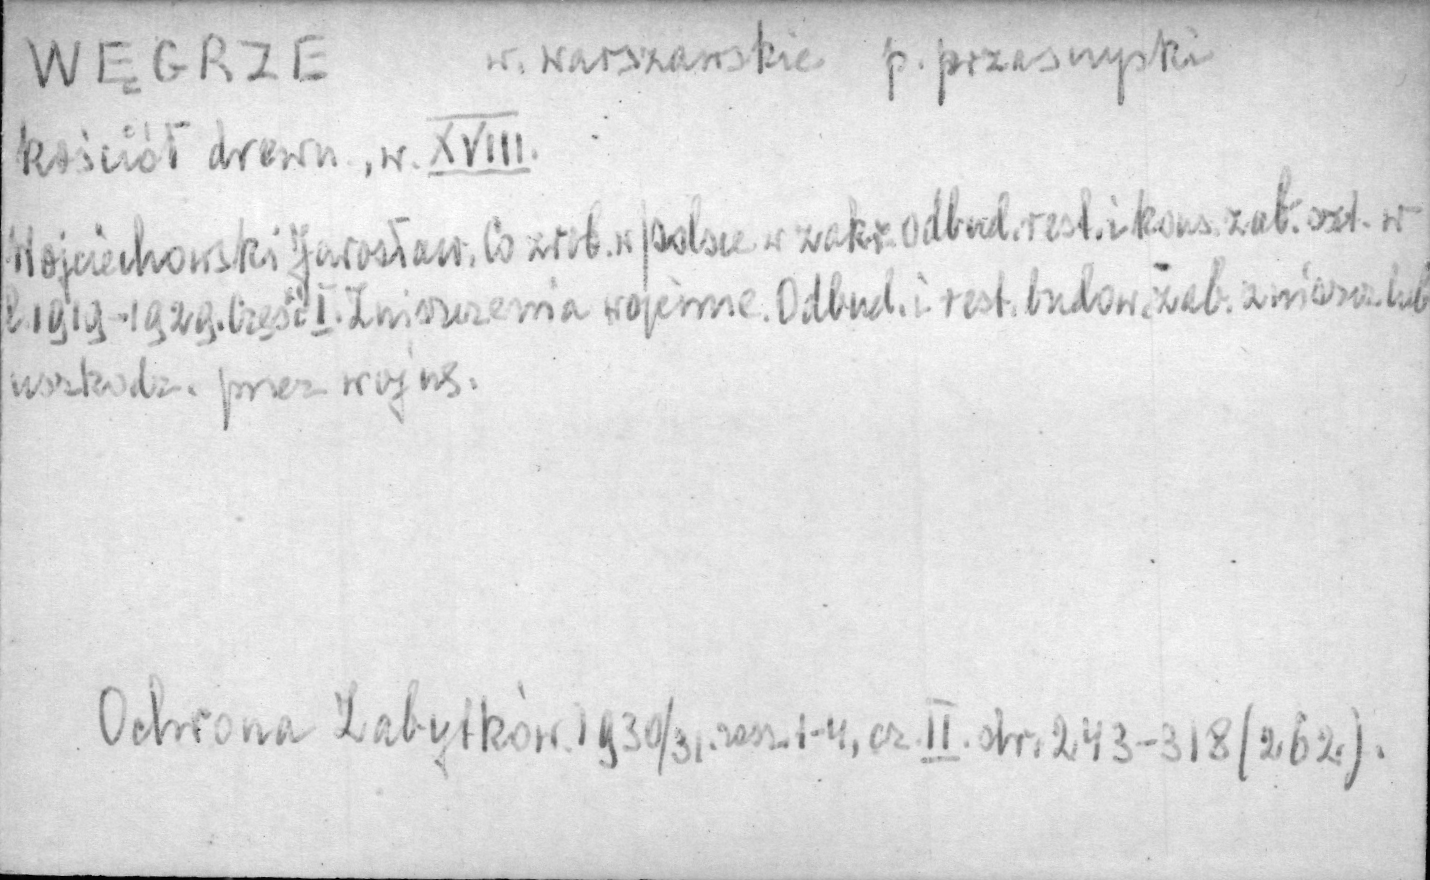 WĘGRZE w. warszawskie p. przasnyski
kościół drewn., w. XVIII.
Wojciechowski Jarosław. Co zrob. w Polsce w zakr. odbud. rest. i kons. zab. szt. w
l. 1919-1929. Część I. Zniszczenia wojenne. Odbud. i rest. budow. zab. zniszcz. lub
uszkodz. przez wojnę.
Ochrona Zabytków. 1930/31. zesz. 1-4, cz. II. str. 243-318 (262.).